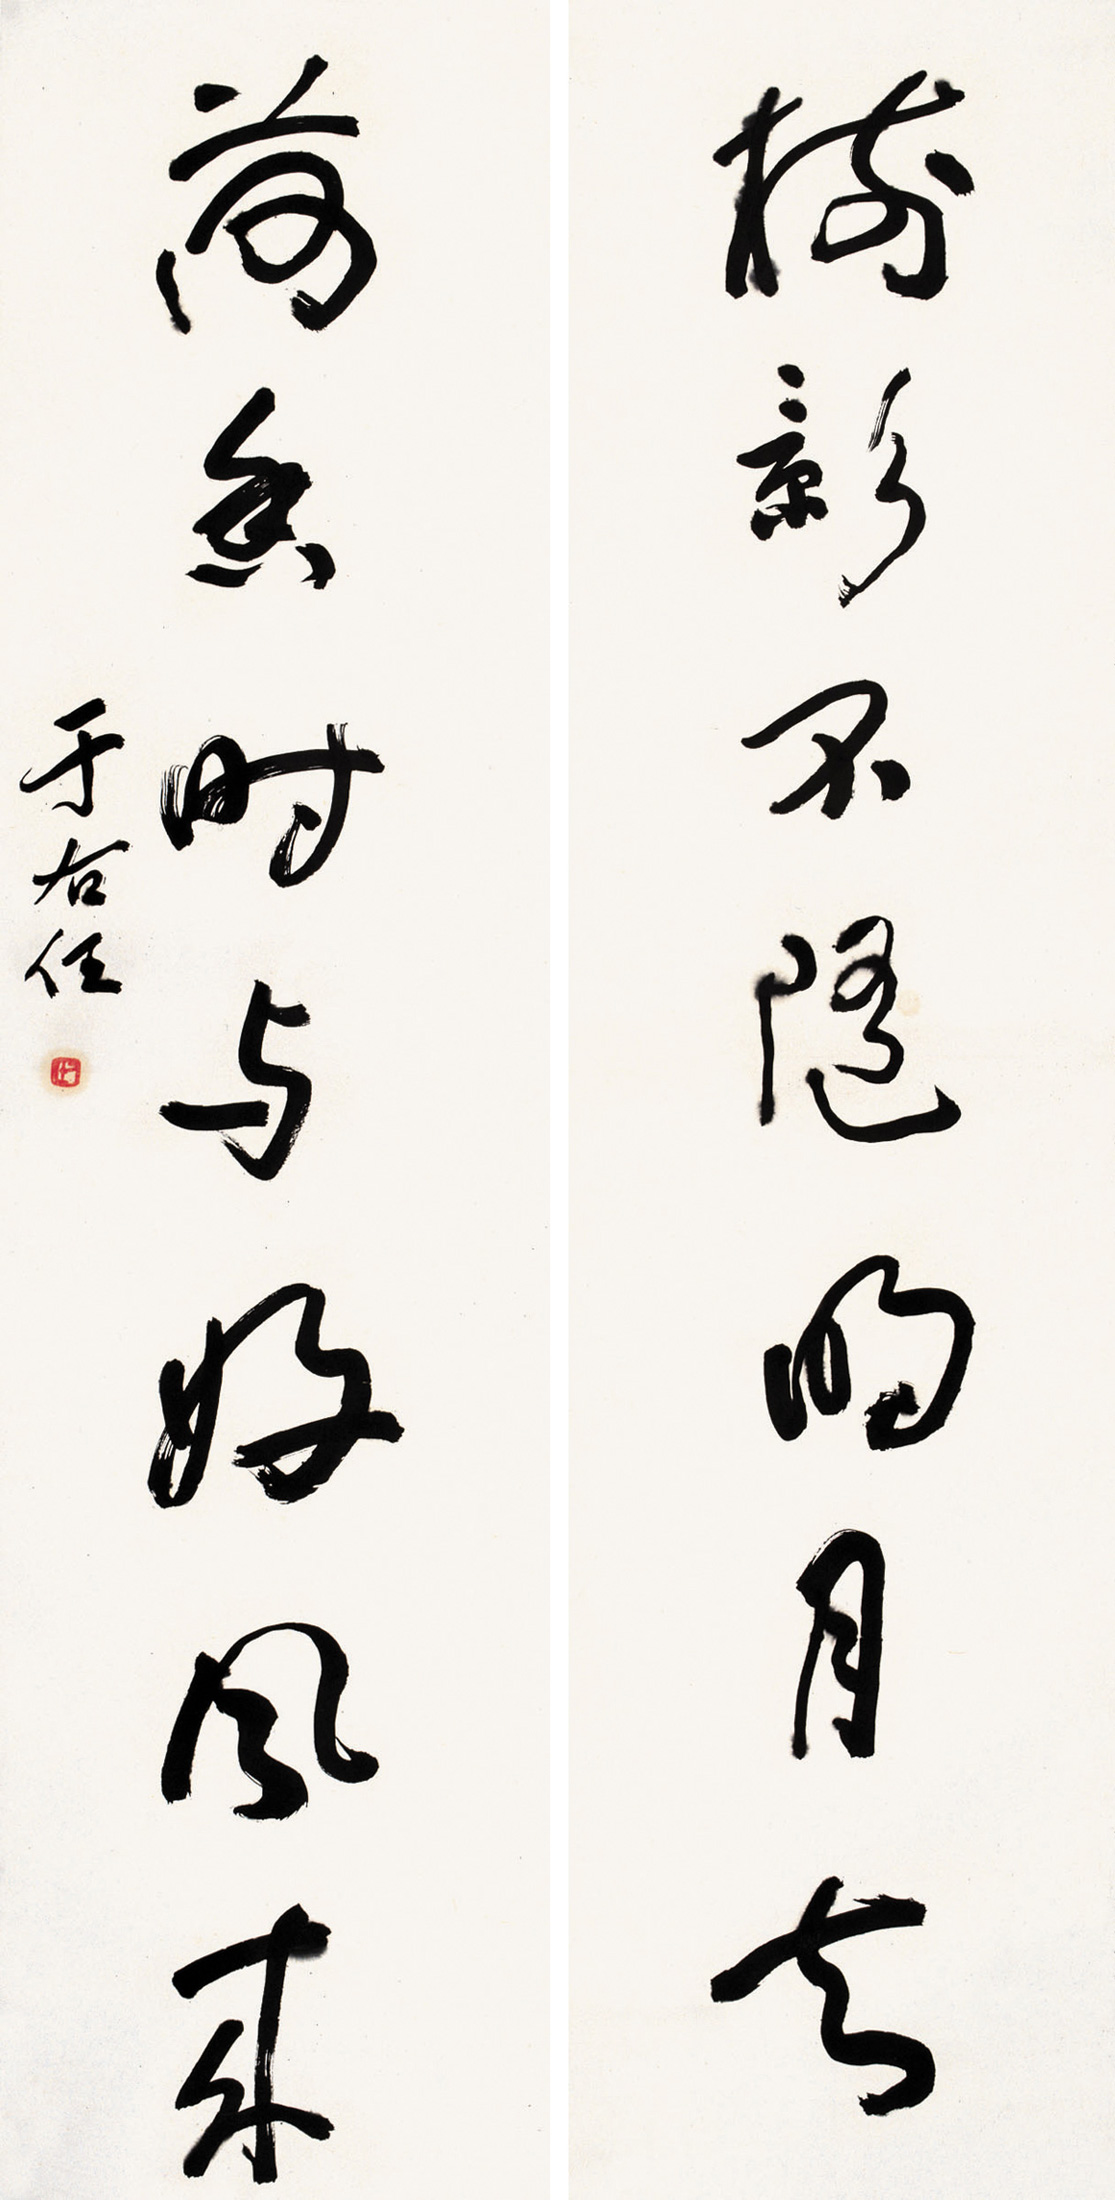 樹影不隨明月去
荷香時与好風來
于右任